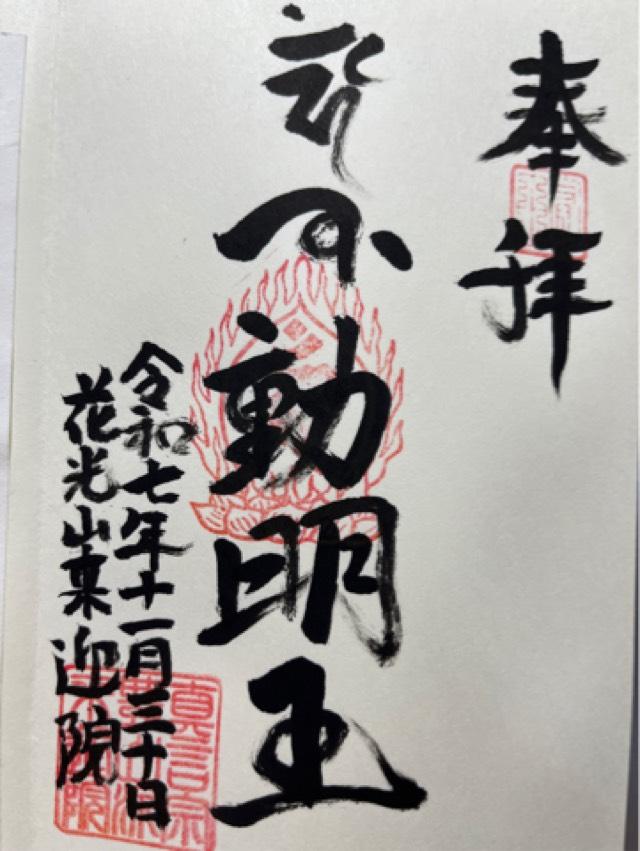 奉拝
不動明王
令和七年十一月三十日
花光山来迎院
真言宗